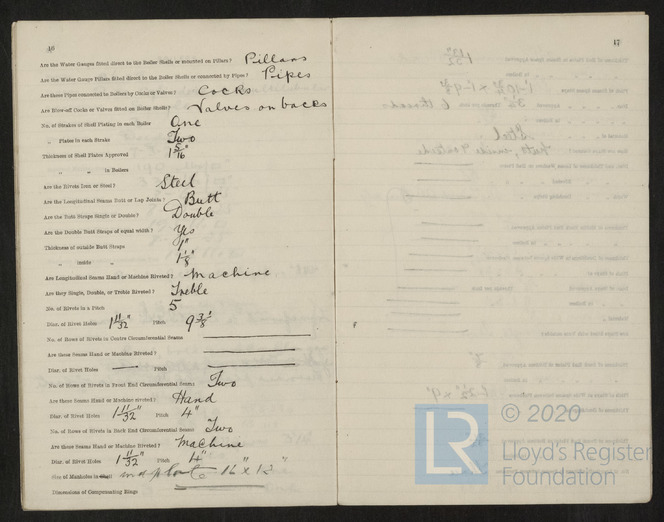 46
Are the Water Gauges fitted direct to the Boiler Shells or mounted on Pillars? Pillars
Are the Water Gauge Pillars fitted direct to the Boiler Shells or connected by Pipes? Pipes
Are these Pipes connected to Boilers by Cocks or Valves? Cocks
Are Blow-off Cocks or Valves fitted on Boiler Shells? Valves on backs
No. of Strakes of Shell Plating in each Boiler One
„ Plates in each Strake Two
Thickness of Shell Plates Approved 1 5/16"
„ „ in Boilers
Are the Rivets Iron or Steel? Steel
Are the Longitudinal Seams Butt or Lap Joints? Butt
Are the Butt Straps Single or Double? Double
Are the Double Butt Straps of equal width? Yes
Thickness of outside Butt Straps 1"
„ inside „ 1 1/8"
Are Longitudinal Seams Hand or Machine Riveted? Machine
Are they Single, Double, or Treble Riveted? Treble
No. of Rivets in a Pitch 5
Diar. of Rivet Holes 1 11/32" Pitch 9 3/8"
No. of Rows of Rivets in Centre Circumferential Seams
Are these Seams Hand or Machine Riveted?
Diar. of Rivet Holes Pitch
No. of Rows of Rivets in Front End Circumferential Seams Two
Are these Seams Hand or Machine riveted? Hand
Diar. of Rivet Holes 1 11/32" Pitch 4"
No. of Rows of Rivets in Back End Circumferential Seams Two
Are these Seams Hand or Machine Riveted? Machine
Diar. of Rivet Holes 1 11/32" Pitch 4"
Size of Manholes in Shell 16" x 12"
Dimensions of Compensating Rings
47
© 2020
LR
Lloyd's Register
Foundation